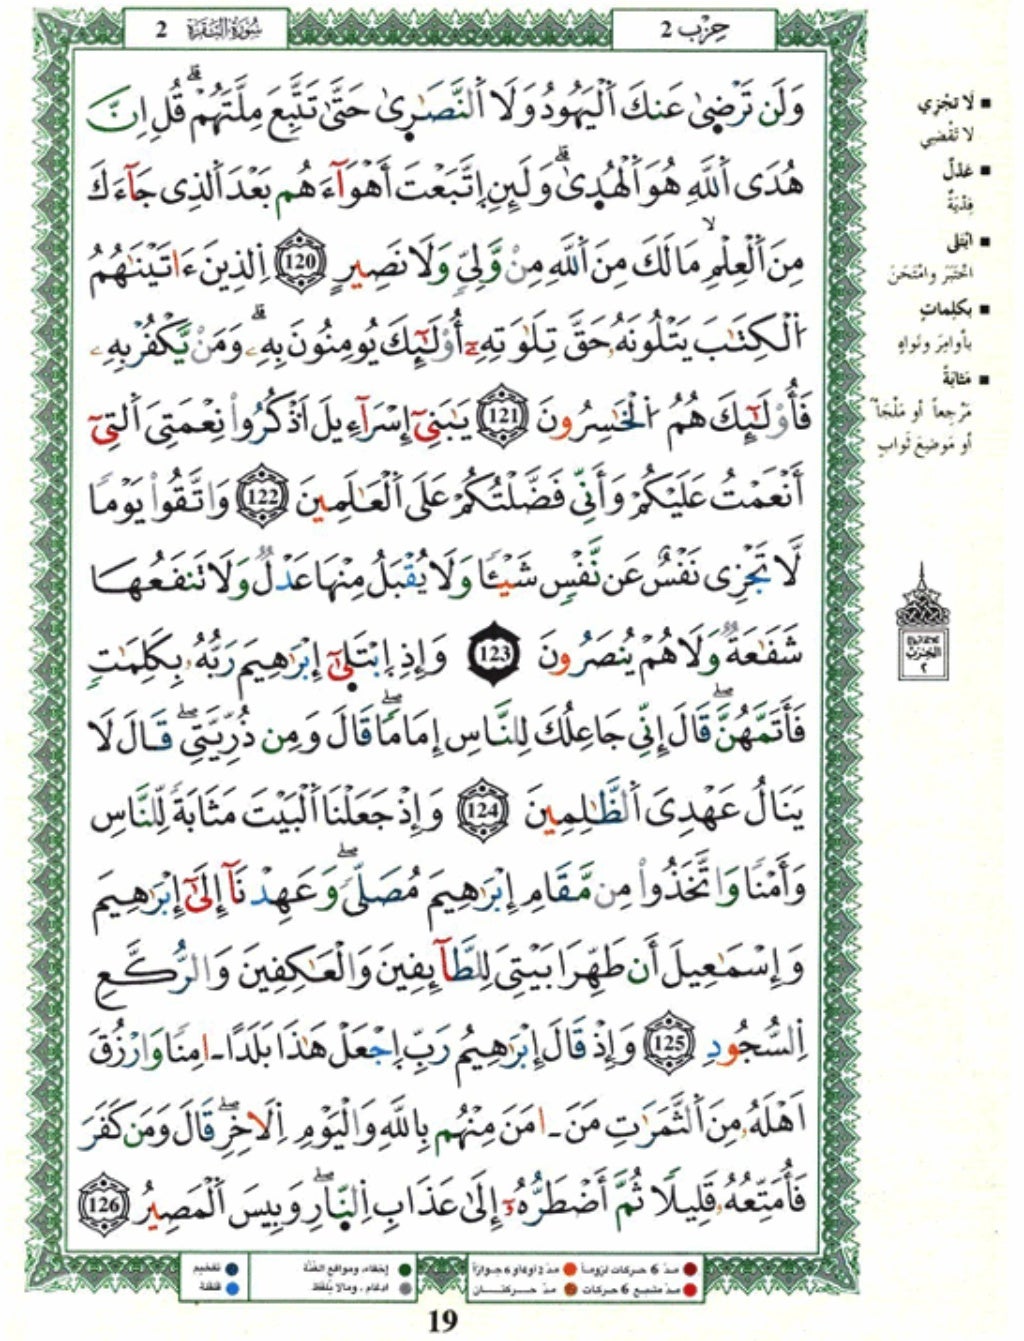 حِزْب 2
سُورَةُ الْبَقَرَة 2
وَلَن تَرْضىٰ عَنكَ اَ۬لْيَهُودُ وَلَا اَ۬لنَّصَٰرىٰ حَتَّىٰ تَتَّبِعَ مِلَّتَهُمْۖ قُلِ اِنَّ
هُدَى اَ۬للَّهِ هُوَ اَ۬لْهُدىٰۖ وَلَئِنِ اِ۪تَّبَعْتَ أَهْوَآءَهُم بَعْدَ اَ۬لذِى جَآءَكَ
مِنَ اَ۬لْعِلْمِ مَا لَكَ مِنَ اَ۬للَّهِ مِنْ وَّلِيّٖ وَلَا نَصِيرٍ 120 اِ۬لذِينَ ءَاتَيْنَٰهُمُ
اُ۬لْكِتَٰبَ يَتْلُونَهُۥ حَقَّ تِلَٰوَتِهِۦٓ أُوْلَٰٓئِكَ يُومِنُونَ بِهِۦۖ وَمَنْ يَّكْفُرْ بِهِۦ
فَأُوْلَٰٓئِكَ هُمُ اُ۬لْخَٰسِرُونَ 121 يَٰبَنِىٓ إِسْرَآءِيلَ اَ۟ذْكُرُواْ نِعْمَتِىَ اَ۬لتِىٓ
أَنْعَمْتُ عَلَيْكُمْ وَأَنِّى فَضَّلْتُكُمْ عَلَى اَ۬لْعَٰلَمِينَ 122 وَاتَّقُواْ يَوْماٗ
لَّا تَجْزِى نَفْسٌ عَن نَّفْسٖ شَيْـٔاٗ وَلَا يُقْبَلُ مِنْهَا عَدْلٞ وَلَا تَنفَعُهَا
شَفَٰعَةٞ وَلَا هُمْ يُنصَرُونَ 123 وَإِذِ اِ۪بْتَلىٰٓ إِبْرَٰهِيمَ رَبُّهُۥ بِكَلِمَٰتٖ
فَأَتَمَّهُنَّۖ قَالَ إِنِّى جَاعِلُكَ لِلنَّاسِ إِمَاماٗۖ قَالَ وَمِن ذُرِّيَّتِىۖ قَالَ لَا
يَنَالُ عَهْدِىَ اَ۬لظَّٰلِمِينَ 124 وَإِذْ جَعَلْنَا اَ۬لْبَيْتَ مَثَابَةٗ لِّلنَّاسِ
وَأَمْناٗ وَاتَّخَذُواْ مِن مَّقَامِ إِبْرَٰهِيمَ مُصَلّىٗۖ وَعَهِدْنَآ إِلَىٰٓ إِبْرَٰهِيمَ
وَإِسْمَٰعِيلَ أَن طَهِّرَا بَيْتِىَ لِلطَّآئِفِينَ وَالْعَٰكِفِينَ وَالرُّكَّعِ
اِ۬لسُّجُودِ 125 وَإِذْ قَالَ إِبْرَٰهِيمُ رَبِّ اِ۪جْعَلْ هَٰذَا بَلَداً ـ اٰمِناٗ وَارْزُقَ
اَهْلَهُۥ مِنَ اَ۬لثَّمَرَٰتِ مَنَ ـ اٰمَنَ مِنْهُم بِاللَّهِ وَالْيَوْمِ اِ۬لَاخِرِۖ قَالَ وَمَن كَفَرَ
فَأُمَتِّعُهُۥ قَلِيلاٗ ثُمَّ أَضْطَرُّهُۥٓ إِلَىٰ عَذَابِ اِ۬لنّ۪ارِۖ وَبِيسَ اَ۬لْمَصِيرُ 126
■ لَا تَجْزِي
لَا تَقْضِي
■ عَدْلٌ
فِدْيَةٌ
■ ابْتَلَى
اخْتَبَرَ وامْتَحَنَ
■ بكلماتٍ
بأوامِرَ ونَواهٍ
■ مَثابَةً
مَرْجِعاً أو مَلْجَأً
أو مَوضِعَ ثَوابٍ
الحزب
٢
مدّ 6 حركات لزوماً
مدّ 2 أو 4 أو 6 جوازاً
إخفاء، ومواقع الغُنَّة
تفخيم
مدّ مشبع 6 حركات
مدّ حــركتــان
ادغام، ومالا يُلفَظ
قلقلة
19